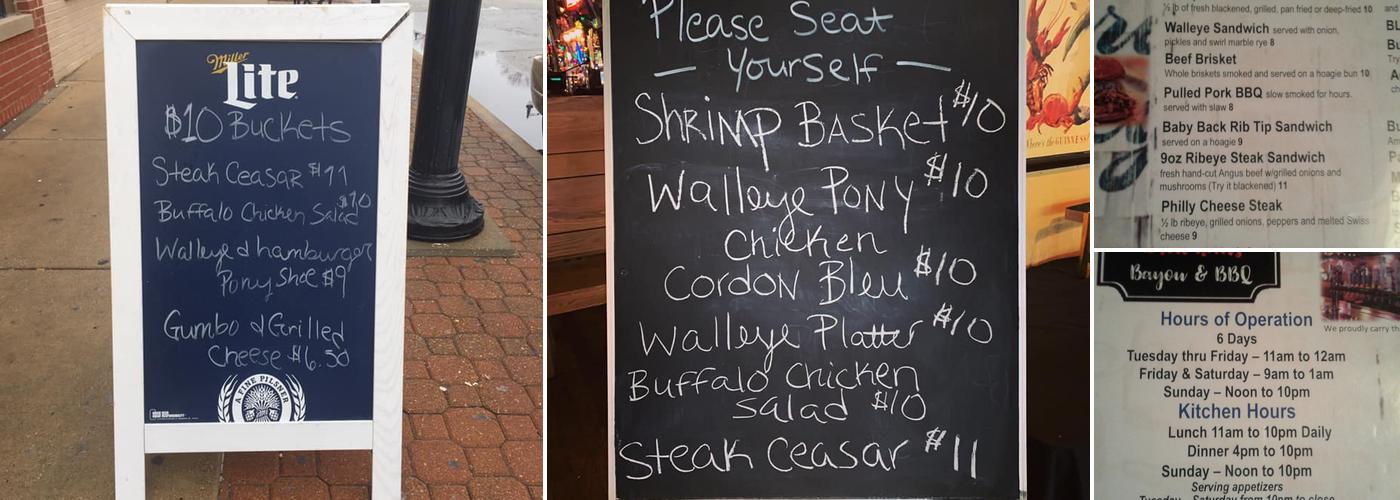 Miller
Lite
$10 Buckets
Steak Ceasar $11
$10
Buffalo Chicken Salad
Walleye & hamburger
Pony Shoe $9
Gumbo & Grilled
Cheese $6.50
A FINE PILSNER
Please Seat
— Yourself —
Shrimp Basket $10
Walleye Pony $10
Chicken
Cordon Bleu $10
Walleye Platter $10
Buffalo Chicken
Salad $10
Steak Ceasar $11
½ lb of fresh blackened, grilled, pan fried or deep-fried 10
Walleye Sandwich served with onion,
pickles and swirl marble rye 8
Beef Brisket
Whole briskets smoked and served on a hoagie bun 10
Pulled Pork BBQ slow smoked for hours.
served with slaw 8
Baby Back Rib Tip Sandwich
served on a hoagie 9
9oz Ribeye Steak Sandwich
fresh hand-cut Angus beef w/grilled onions and
mushrooms (Try it blackened) 11
Philly Cheese Steak
½ lb ribeye, grilled onions, peppers and melted Swiss
cheese 9
Bayou & BBQ
We proudly carry
Hours of Operation
6 Days
Tuesday thru Friday – 11am to 12am
Friday & Saturday – 9am to 1am
Sunday – Noon to 10pm
Kitchen Hours
Lunch 11am to 10pm Daily
Dinner 4pm to 10pm
Sunday – Noon to 10pm
Serving appetizers
Tuesday – Saturday from 10pm to close